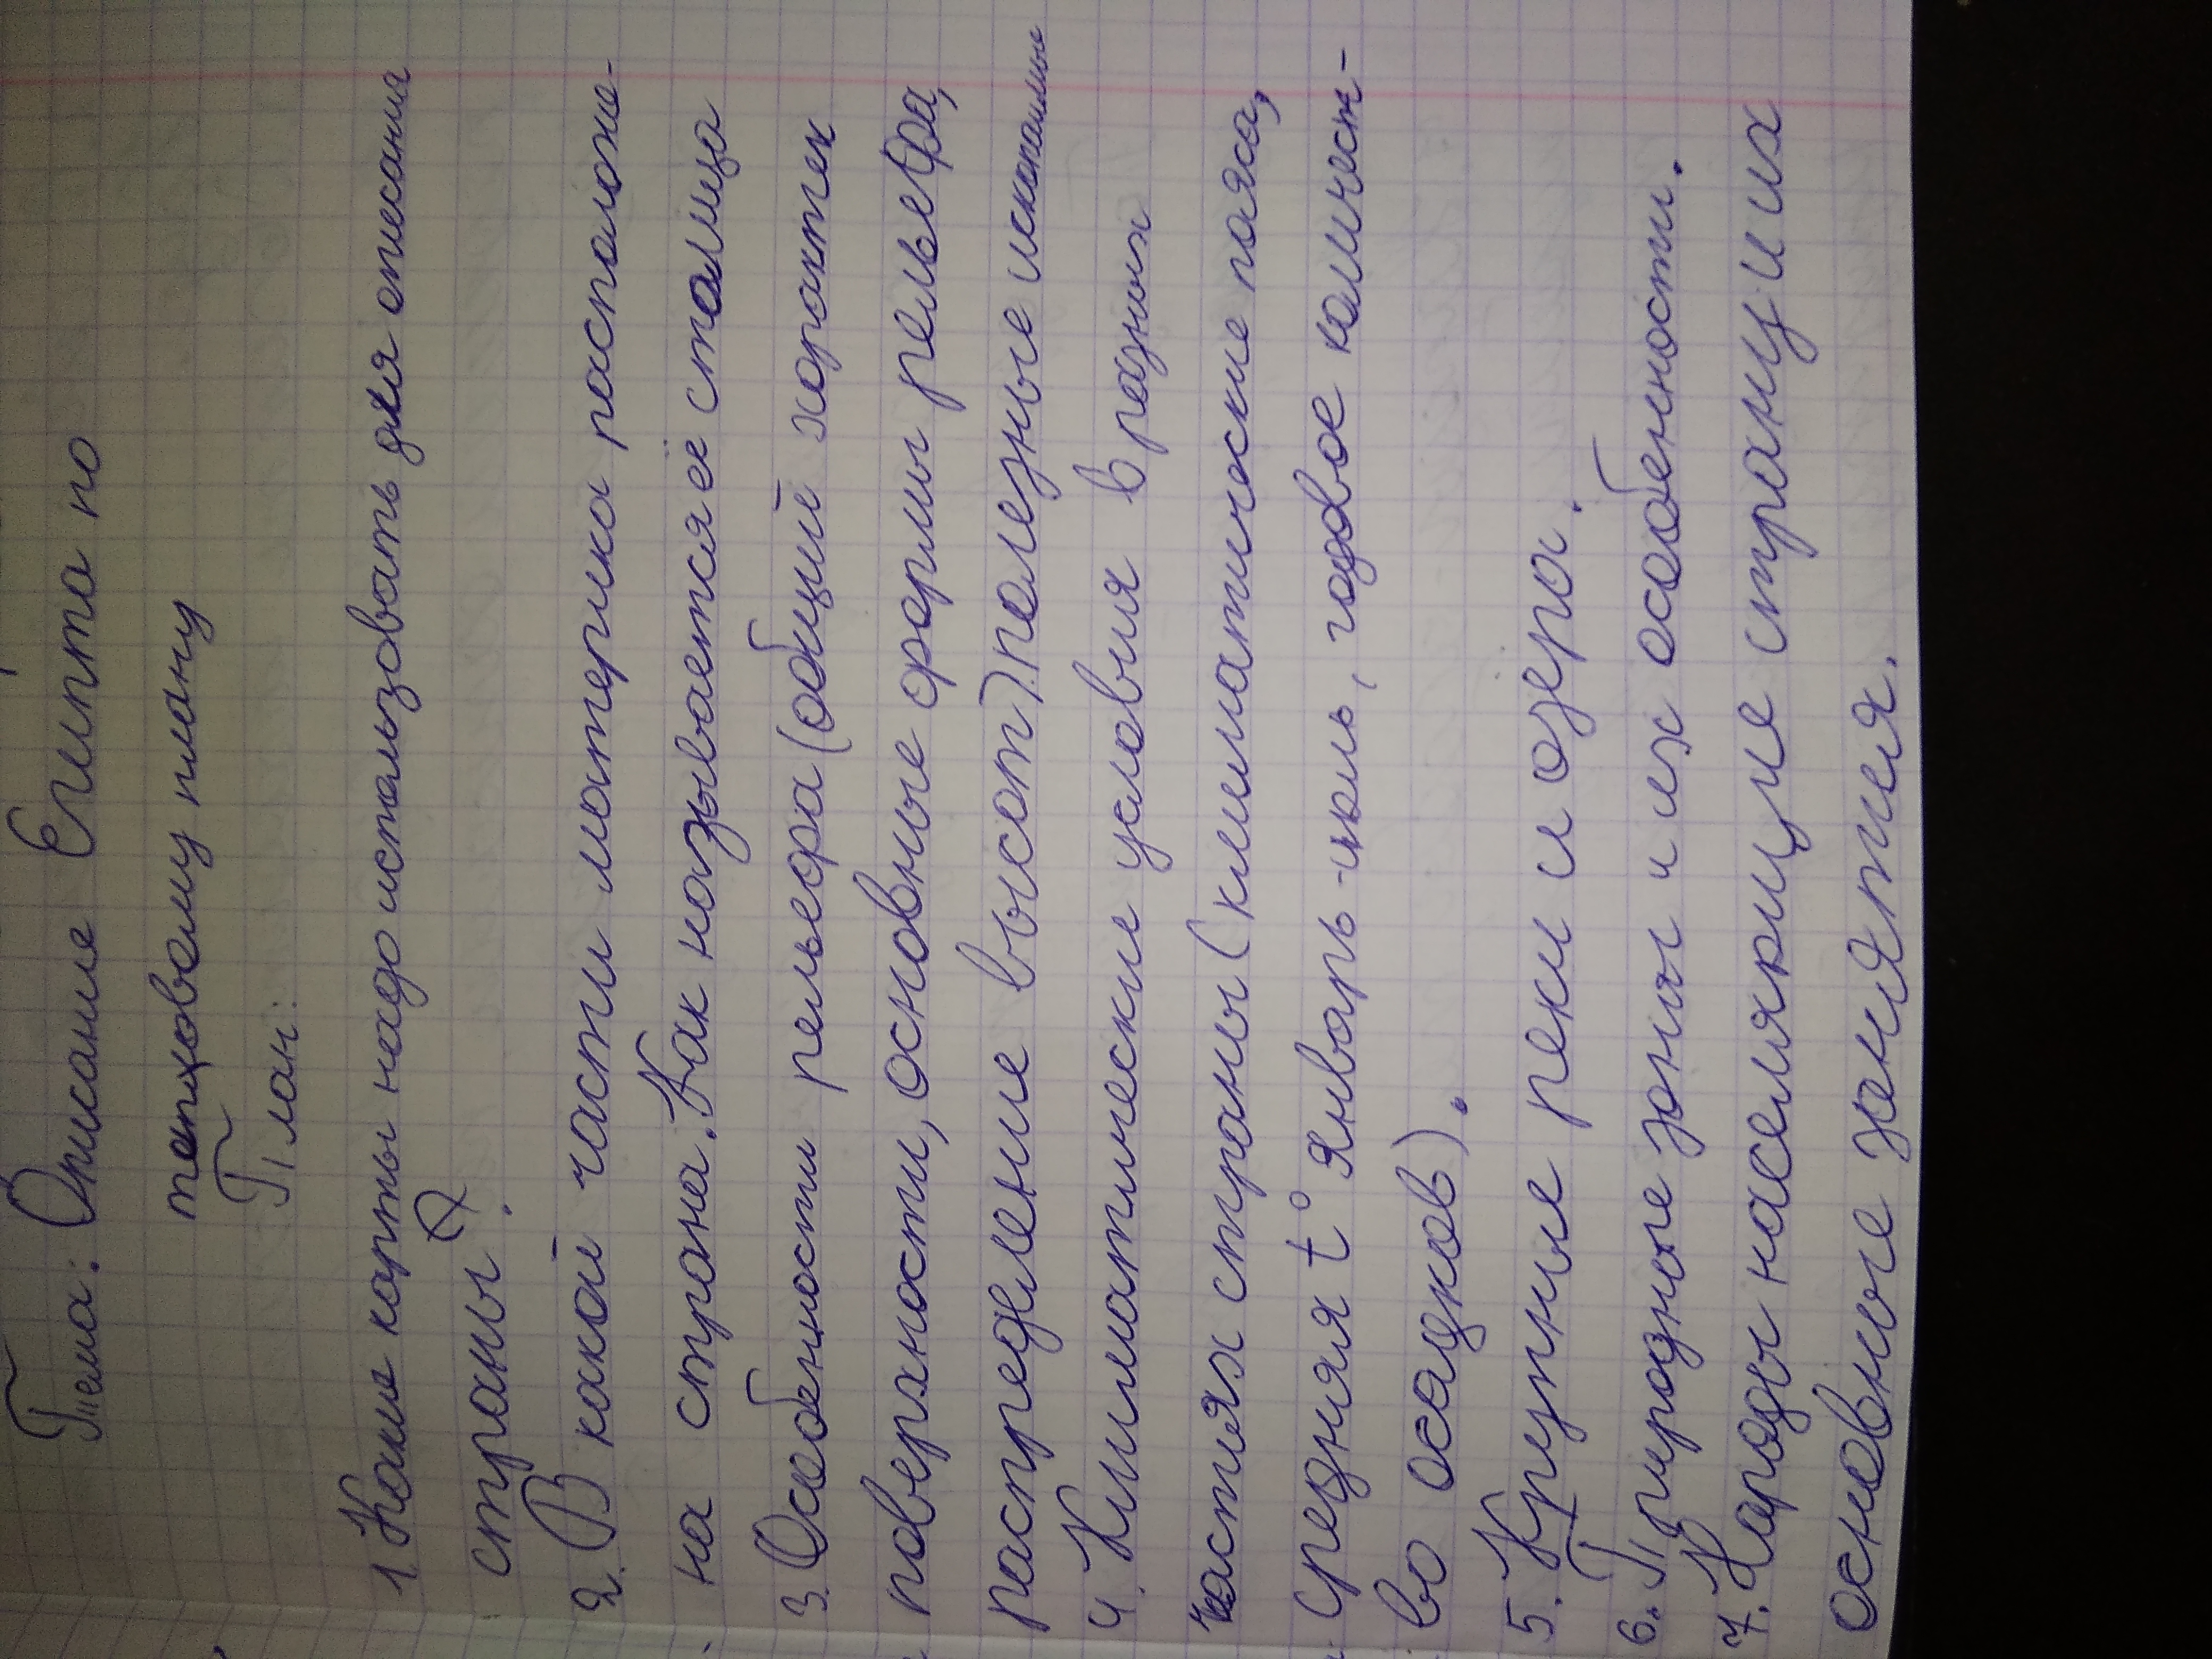 Тема: Описание Египта по
типовому плану
План:
1. Какие карты надо использовать для описания
страны?
2. В какой части материка расположе-
на страна. Как называется её столица
3. Особенности рельефа (общий характек
поверхности, основные формы рельефа,
распределние высот). полезные ископаемые
4. Климатически условия в разных
частях страны (климатические пояса,
средняя t° январь - июль, годовое количест-
во осадков).
5. Крупные реки и озера.
6. Природные зоны и их особенности.
7. Народы населяющие страну и их
основные занятия.